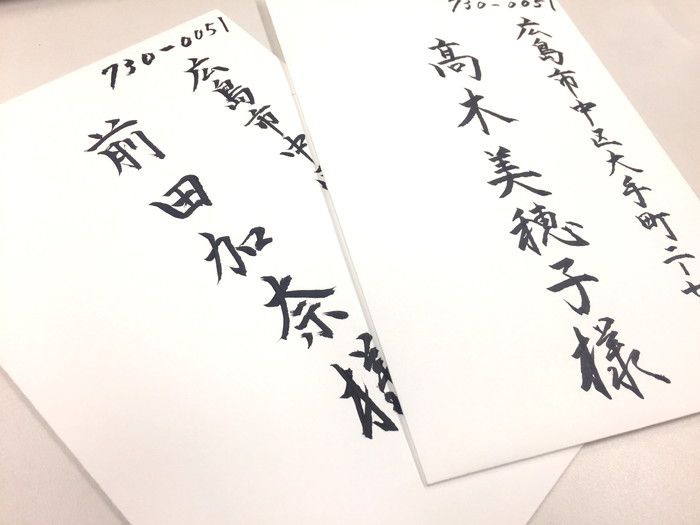 730-0051
広島市中
前田加奈様
730-0051
広島市中区大手町二丁七
髙木美穂子様